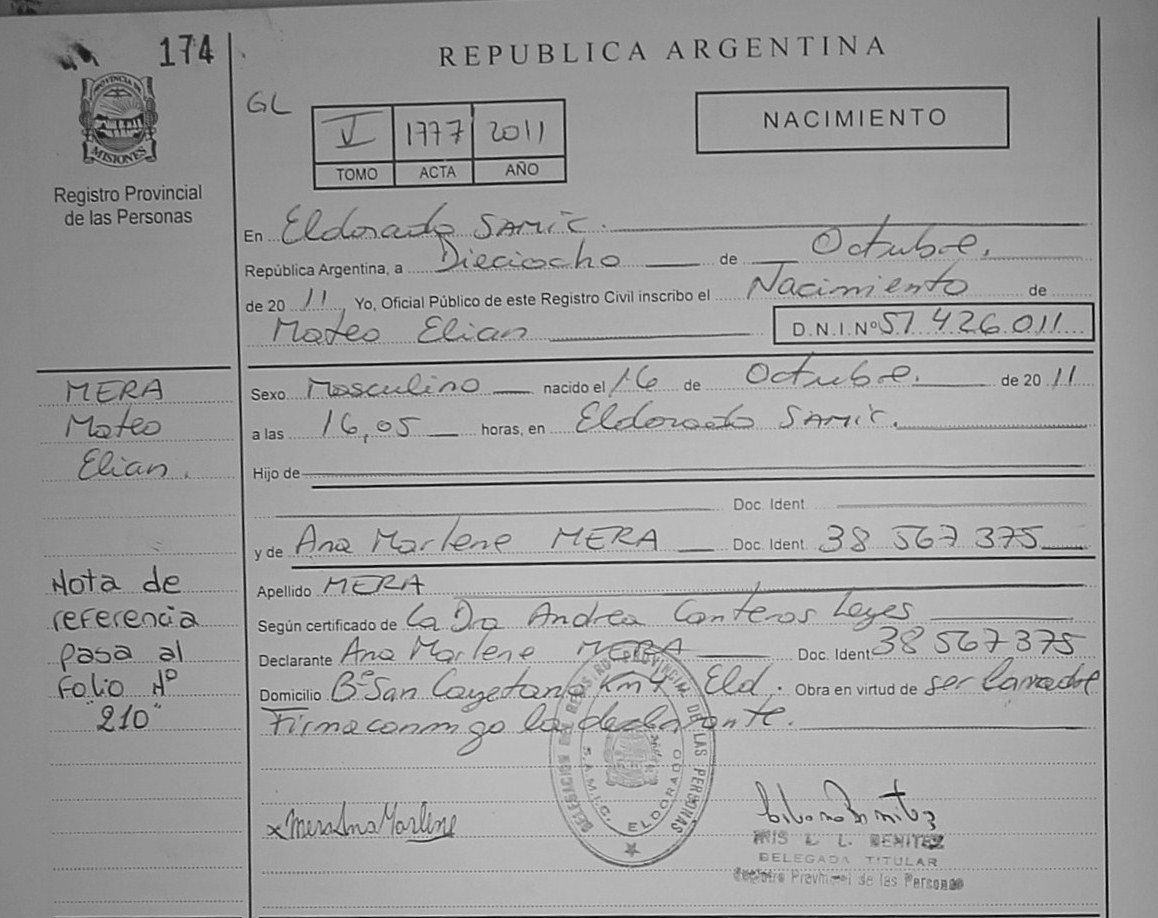 174
REPUBLICA ARGENTINA
PROVINCIA DE
MISIONES
Registro Provincial
de las Personas
GL
V 1777 2011
TOMO ACTA AÑO
NACIMIENTO
En Eldorado SAMIC.
República Argentina, a Dieciocho de Octubre.
de 20 11 Yo, Oficial Público de este Registro Civil inscribo el Nacimiento de
Mateo Elian D.N.I. Nº 51.426.011
MERA
Mateo
Elian.
Sexo Masculino nacido el 16 de Octubre. de 20 11
a las 16,05 horas, en Eldorado SAMIC.
Hijo de
Doc. Ident.
y de Ana Marlene MERA Doc. Ident. 38 567 375
Apellido MERA
Según certificado de La Dra Andrea Conteros Leyes
Declarante Ana Marlene MERA Doc. Ident 38 567 375
Domicilio Bº San Cayetano Km 4 Eld. Obra en virtud de ser la madre
Firma conmigo la declarante.
Nota de
referencia
pasa al
Folio Nº
"210"
DELEGACION DEL REGISTRO PROVINCIAL DE LAS PERSONAS
S.A.M.I.C. ELDORADO
x Mera Ana Marlene
IRIS L. L. BENITEZ
DELEGADA TITULAR
Registro Provincial de las Personas